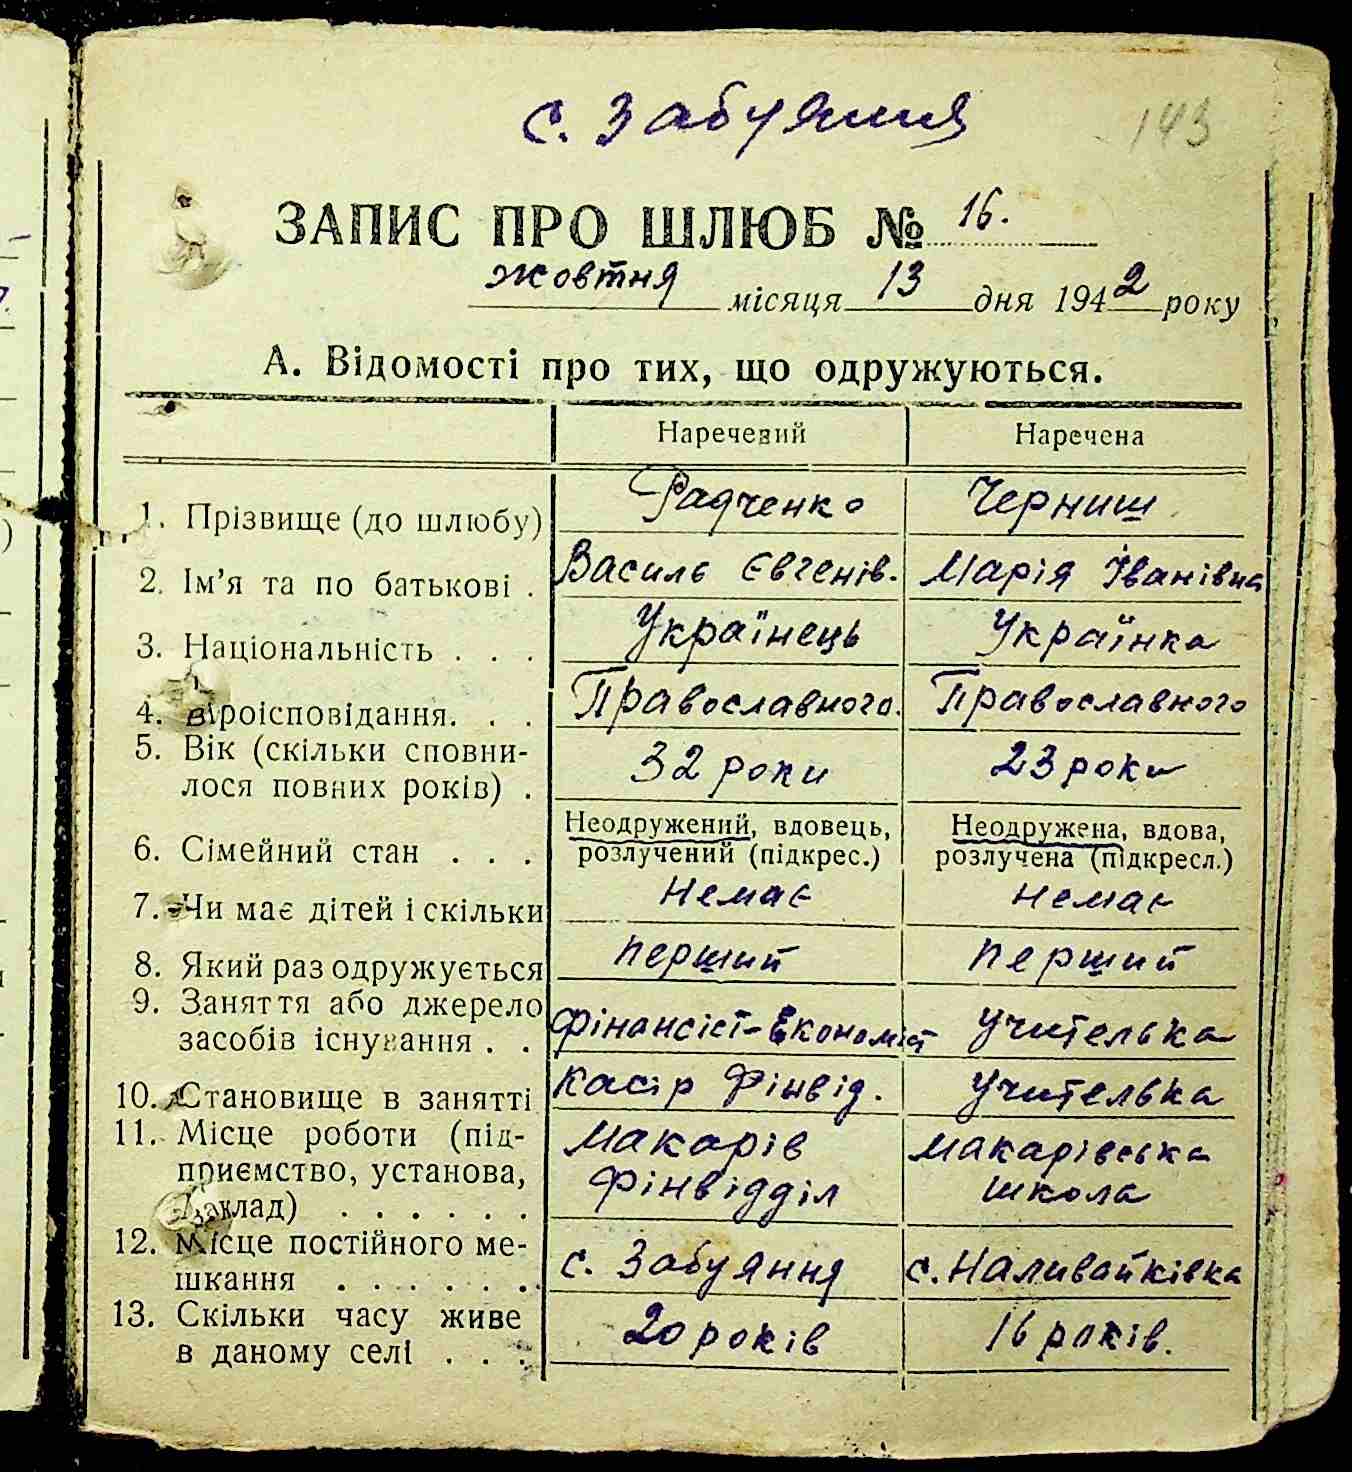 с. Забуяння
143
ЗАПИС ПРО ШЛЮБ № 16.
жовтня місяця 13 дня 1942 року
А. Відомості про тих, що одружуються.
Наречений Наречена
1. Прізвище (до шлюбу) Радченко Черниш
2. Ім’я та по батькові . Василь Євгенів. Марія Іванівна
3. Національність . . . Українець Українка
4. віроісповідання. . . Православного. Православного
5. Вік (скільки сповни-
лося повних років) . 32 роки 23 роки
6. Сімейний стан . . . Неодружений, вдовець, Неодружена, вдова,
розлучений (підкрес.) розлучена (підкресл.)
7. Чи має дітей і скільки Немає Немає
8. Який раз одружується перший перший
9. Заняття або джерело
засобів існування . . Фінансіст-Економіст учителька
10. Становище в занятті касір Фінвід. учителька
11. Місце роботи (під- Макарів Макарівська
приємство, установа, Фінвідділ школа
заклад) . . . . . .
12. Місце постійного ме-
шкання . . . . . . . с. Забуяння с. Наливайківка
13. Скільки часу живе
в даному селі . . . 20 років 16 років.